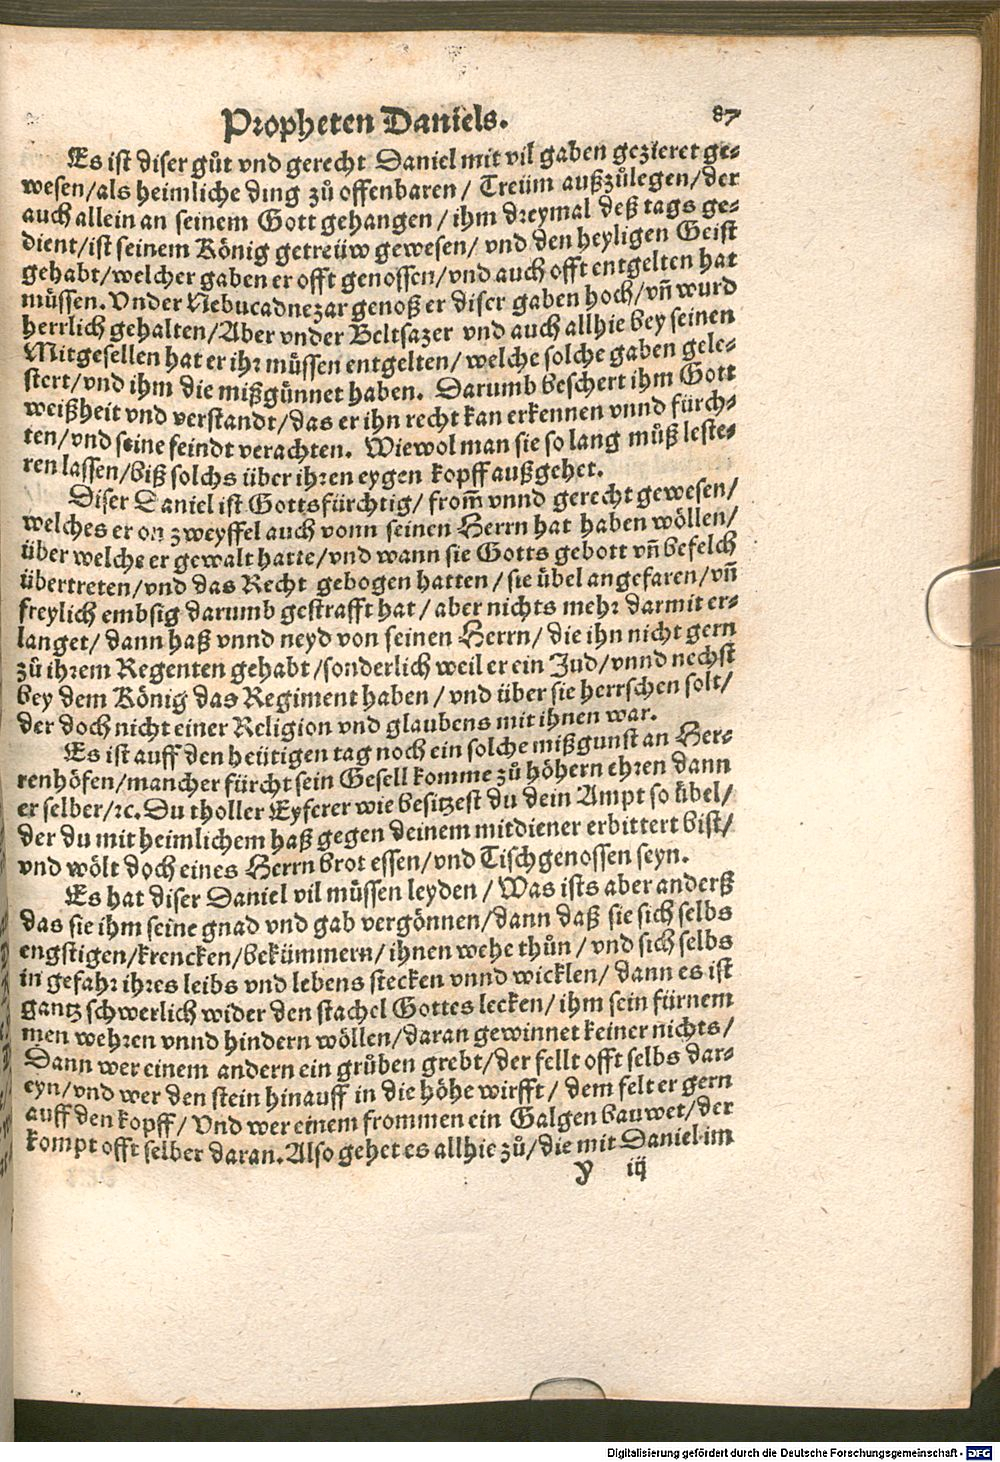 Propheten Daniels. 87
Es ist diser gůt vnd gerecht Daniel mit vil gaben gezieret ge-
wesen/als heimliche ding zů offenbaren/ Treüm außzůlegen/der
auch allein an seinem Gott gehangen/ihm dreymal deß tags ge-
dient/ist seinem König getreüw gewesen/ vnd den heyligen Geist
gehabt/welcher gaben er offt genossen/vnd auch offt entgelten hat
müssen. Vnder Nebucadnezar genoß er diser gaben hoch/vñ wurd
herrlich gehalten/Aber vnder Beltsazer vnd auch allhie bey seinen
Mitgesellen hat er ihr müssen entgelten/ welche solche gaben gele-
stert/vnd ihm die mißgünnet haben. Darumb beschert ihm Gott
weißheit vnd verstandt/das er ihn recht kan erkennen vnnd fürch-
ten/vnd seine feindt verachten. Wiewol man sie so lang můß leste-
ren lassen/biß solchs über ihren eygen kopff außgehet.
Diser Daniel ist Gottsfürchtig/ from̃ vnnd gerecht gewesen/
welches er on zweyffel auch vonn seinen Herrn hat haben wöllen/
über welche er gewalt hatte/vnd wann sie Gotts gebott vñ befelch
übertreten/vnd das Recht gebogen hatten/sie übel angefaren/vñ
freylich embsig darumb gestrafft hat/ aber nichts mehr darmit er-
langet/ dann haß vnnd neyd von seinen Herrn/ die ihn nicht gern
zů ihrem Regenten gehabt/sonderlich weil er ein Jud/vnnd nechst
bey dem König das Regiment haben/ vnd über sie herrschen solt/
der doch nicht einer Religion vnd glaubens mit ihnen war.
Es ist auff den heütigen tag noch ein solche mißgunst an Her-
renhöfen/mancher fürcht sein Gesell komme zů höhern ehren dann
er selber/ꝛc. Du tholler Eyferer wie besitzest du dein Ampt so übel/
der du mit heimlichem haß gegen deinem mitdiener erbittert bist/
vnd wölt doch eines Herrn brot essen/vnd Tischgenossen seyn.
Es hat diser Daniel vil müssen leyden/ Was ists aber anderß
das sie ihm seine gnad vnd gab vergönnen/dann daß sie sich selbs
engstigen/krencken/bekümmern/ihnen wehe thůn/ vnd sich selbs
in gefahr ihres leibs vnd lebens stecken vnnd wicklen/ dann es ist
gantz schwerlich wider den stachel Gottes lecken/ihm sein fürnem
men wehren vnnd hindern wöllen/daran gewinnet keiner nichts/
Dann wer einem andern ein grůben grebt/der fellt offt selbs dar-
eyn/vnd wer den stein hinauff in die höhe wirfft/ dem felt er gern
auff den kopff/ Vnd wer einem frommen ein Galgen bauwet/der
kompt offt selber daran. Also gehet es allhie zů/die mit Daniel im
y iij
Digitalisierung gefördert durch die Deutsche Forschungsgemeinschaft - DFG